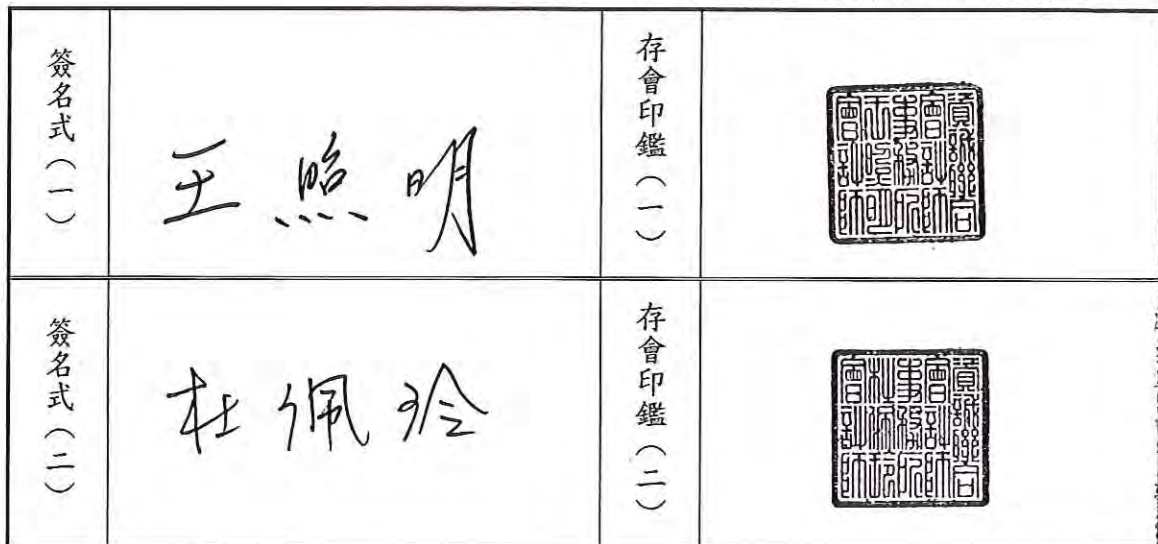 簽名式(一)
王照明
存會印鑑(一)
資誠聯合會計師事務所王照明會計師
簽名式(二)
杜佩玲
存會印鑑(二)
資誠聯合會計師事務所杜佩玲會計師